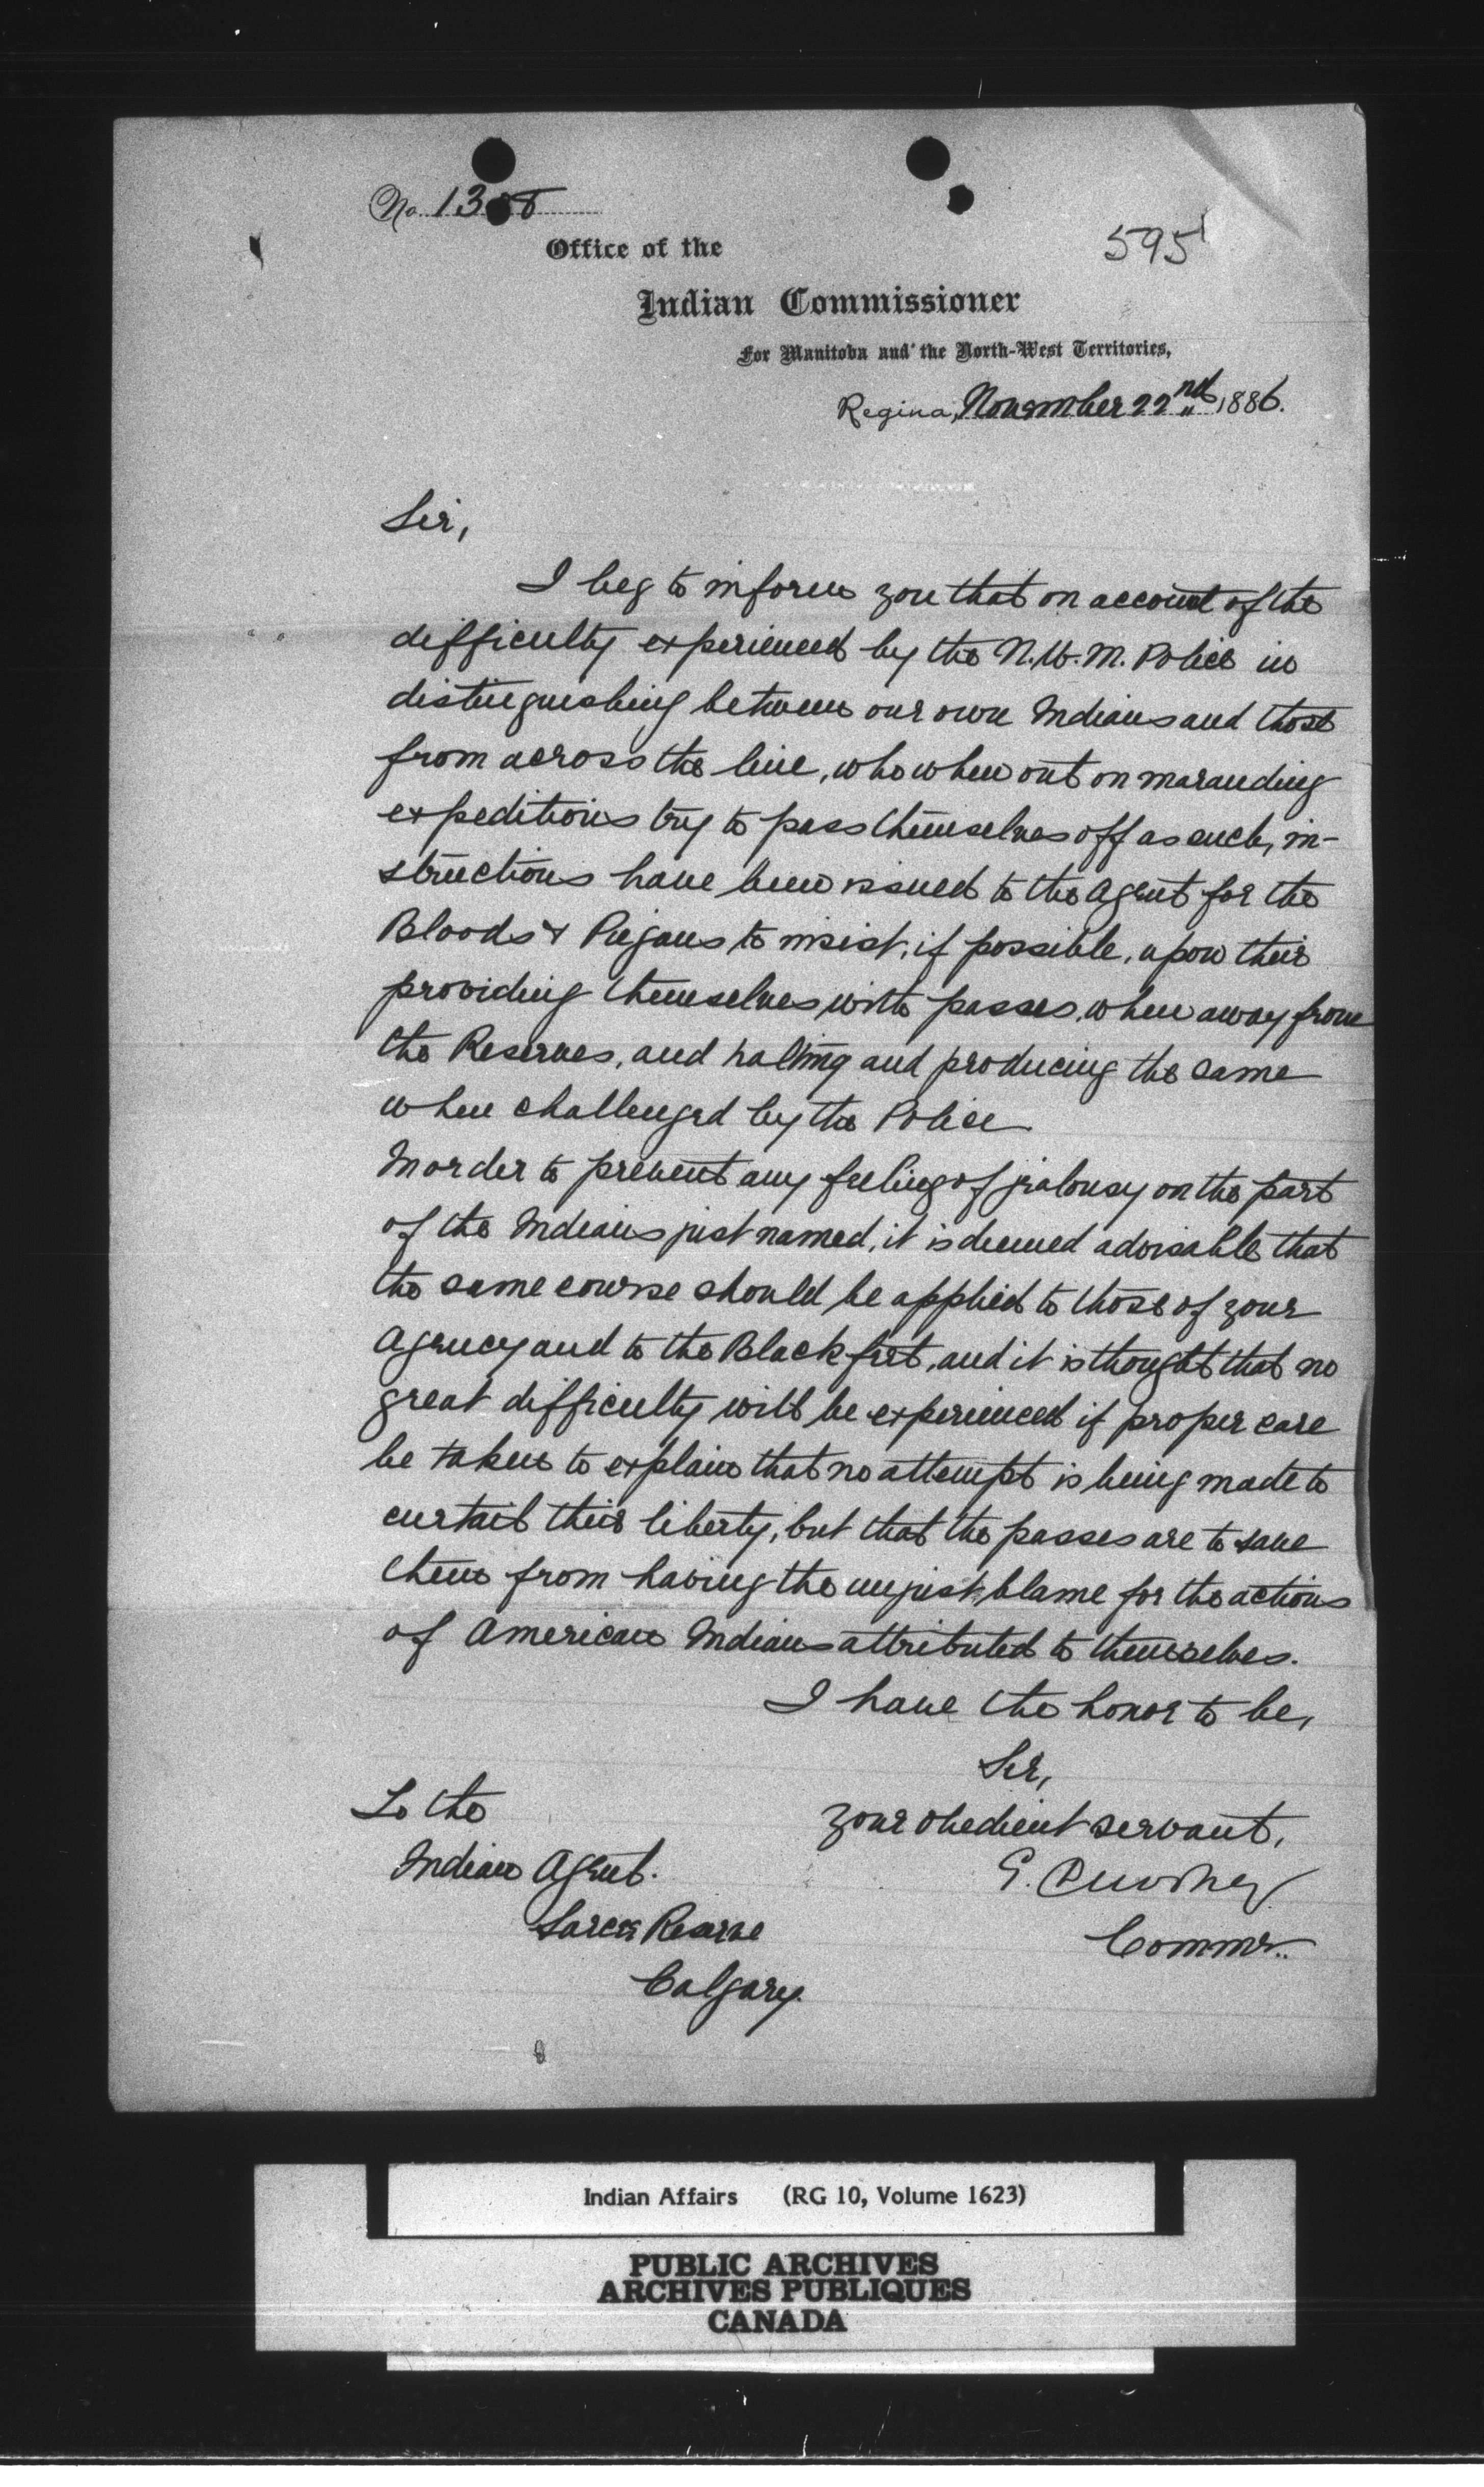 No.
595
Office of the
Indian Commissioner
For Manitoba and the North-West Territories,
Regina, November 22nd 1886.
Sir,
I beg to inform you that on account of the
difficulty experienced by the N.W.M. Police in
distinguishing between our own Indians and those
from across the line, who when out on marauding
expeditions try to pass themselves off as such, in-
structions have been issued to the Agent for the
Bloods & Piegans to insist, if possible, upon their
providing themselves with passes, when away from
the Reserves, and halting and producing the same
when challenged by the Police
In order to prevent any feeling of jealousy on the part
of the Indians just named, it is deemed advisable that
the same course should be applied to those of your
Agency and to the Blackfeet, and it is thought that no
great difficulty will be experienced if proper care
be taken to explain that no attempt is being made to
curtail their liberty, but that the passes are to save
them from having the unjust blame for the actions
of American Indians attributed to themselves.
I have the honor to be,
Sir,
your obedient servant,
E. Dewdney
Commr.
To the
Indian Agent.
Sarcee Reserve
Calgary.
Indian Affairs (RG 10, Volume 1623)
PUBLIC ARCHIVES
ARCHIVES PUBLIQUES
CANADA